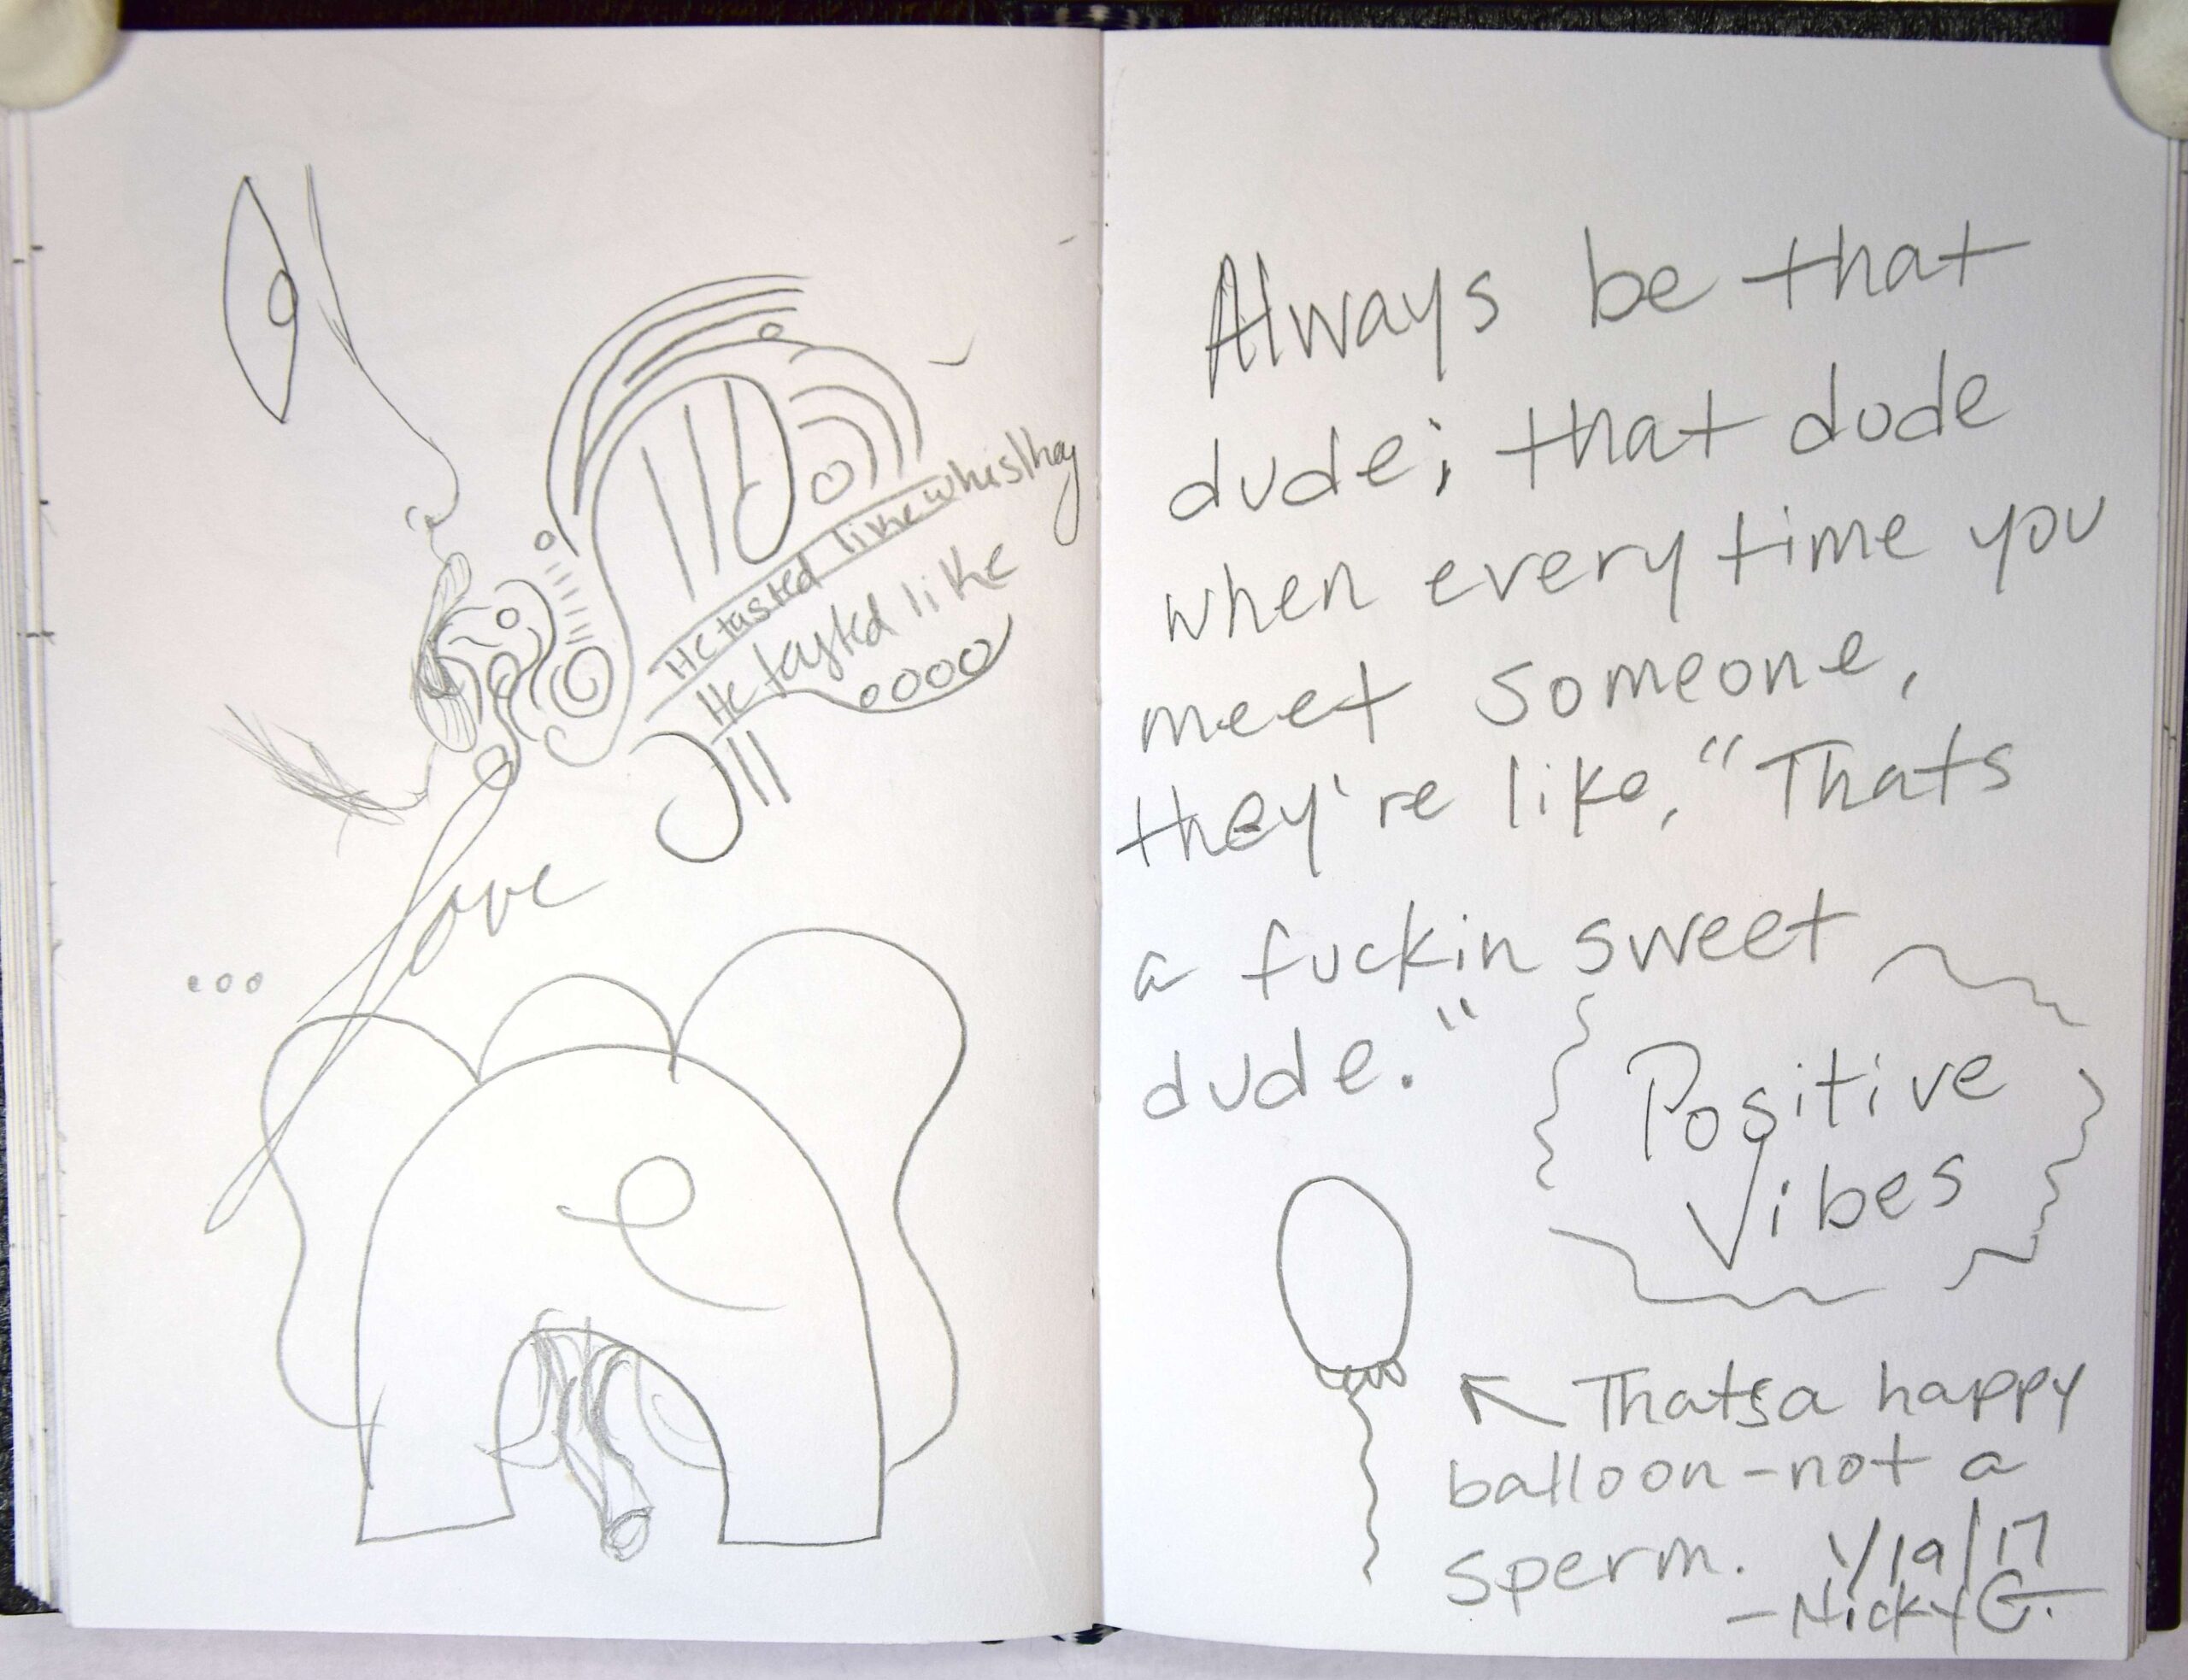 He tasted like whiskey
He tasted like
love
Always be that
dude; that dude
when every time you
meet someone,
they're like, "Thats
a fuckin sweet
dude."
Positive
Vibes
Thats a happy
balloon - not a
sperm. 1/19/17
- Nicky G.